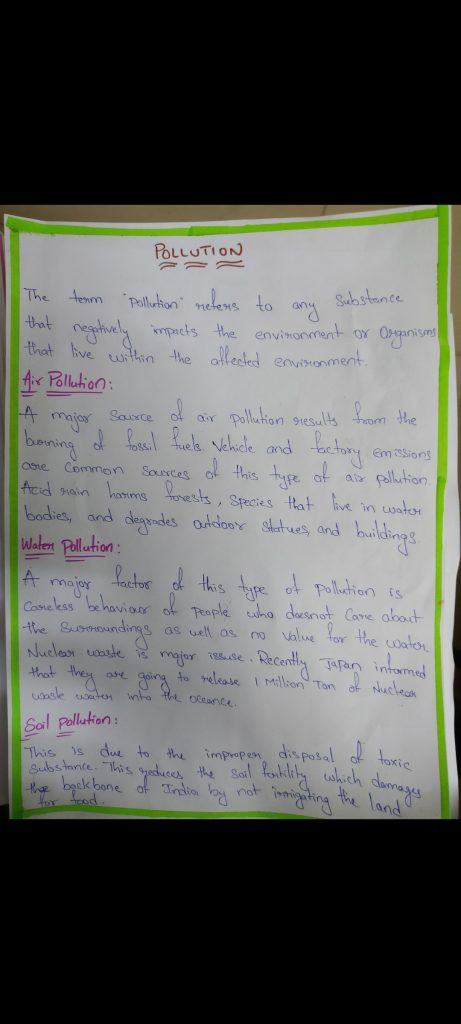 POLLUTION
The term "Pollution" refers to any Substance
that negatively impacts the environment or Organisms
that live within the affected environment.
Air Pollution:
A major Source of air pollution results from the
burning of fossil fuels. Vehicle and factory emissions
are Common Sources of this type of air pollution.
Acid rain harms forests, Species that live in water
bodies, and degrades outdoor Statues, and buildings.
Water Pollution:
A major factor of this type of pollution is
Careless behaviour of people who doesnot Care about
the Surroundings as well as no value for the water.
Nuclear waste is major issuse. Recently Japan informed
that they are going to release 1 Million Ton of Nuclear
waste water into the oceance.
Soil pollution:
This is due to the improper disposal of toxic
Substance. This reduces the Soil fertility which damages
the backbone of India by not irrigating the land
for food.